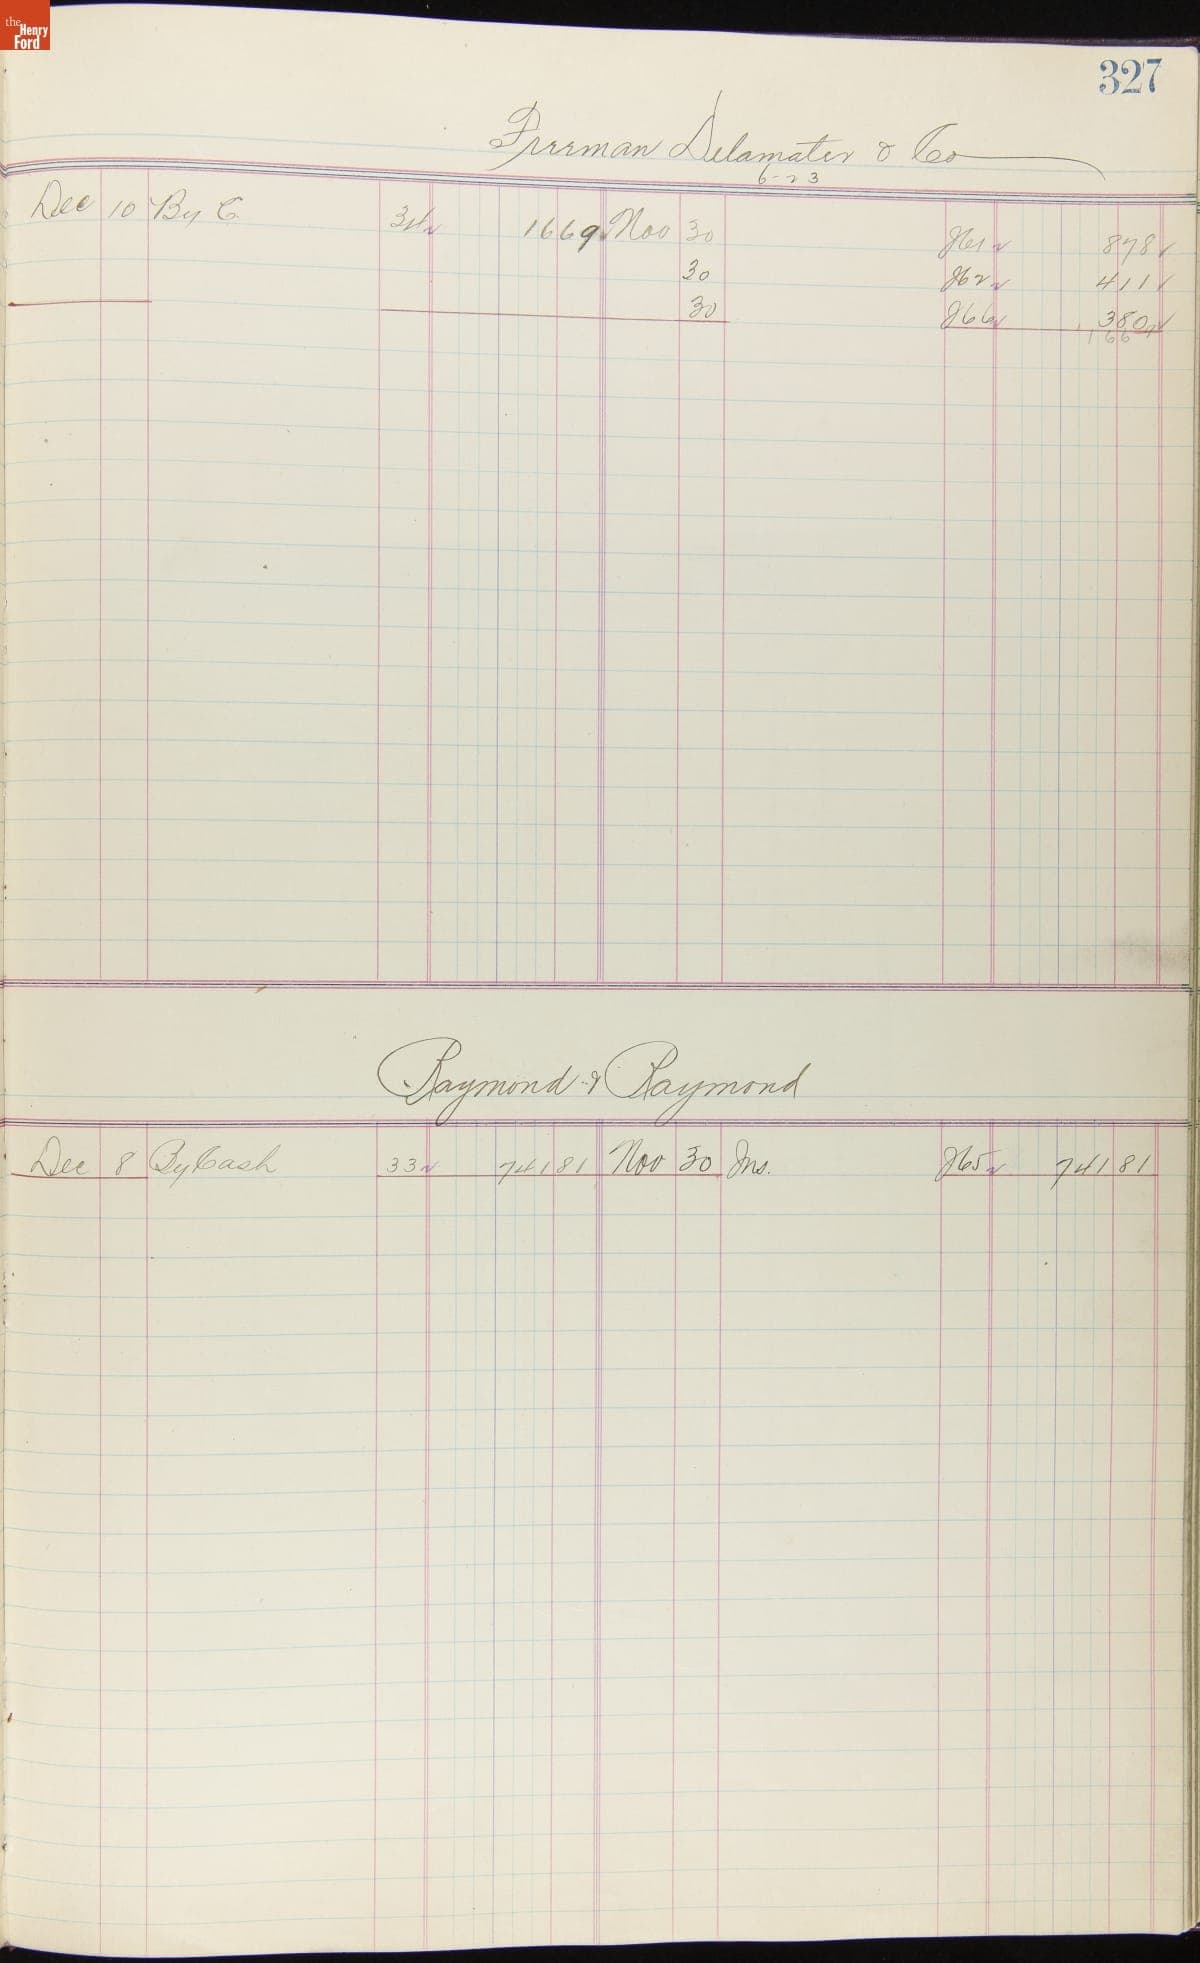 the Henry Ford
327
Freeman Delamater & Co
6-23
Dec 10 By C. 34 1669 Nov 30 J61 878
30 J62 411
30 J66 380
1669
Raymond & Raymond
Dec 8 By Cash 33 741 81 Nov 30 Ins. J65 741 81